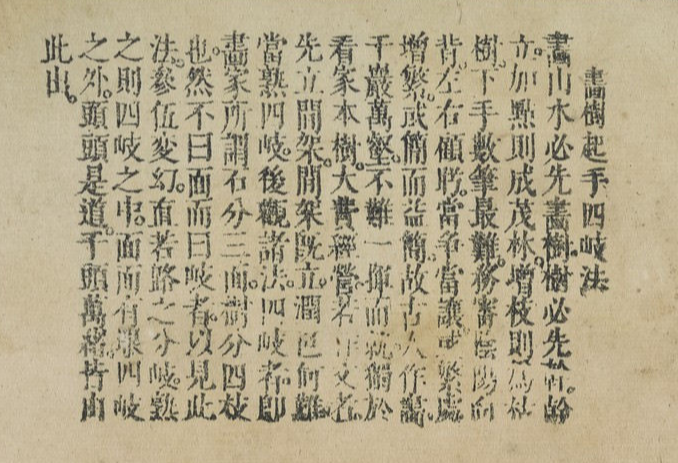 畫樹起手四岐法
畫山水必先畫樹樹必先幹幹
立。加點則成茂林。增枝則為枯
樹。下手數筆最難。務審陰陽向
背。左右顧盼。當爭當讓。或繁處
增繁。或簡而益簡。故古人作畫
千巖萬壑。不難一揮而就。獨於
看家本樹。大費經營。若作文者
先立間架。間架既立。潤色何難
當熟四岐。後觀諸法。四岐者。即
畫家所謂石分三面樹分四枝
也。然不曰面而曰岐者。以見此
法。參伍變幻。直若路之分岐。熟
之則四岐之中。面面有眼四岐
之外。頭頭是道。千頭萬緒。皆由
此出。